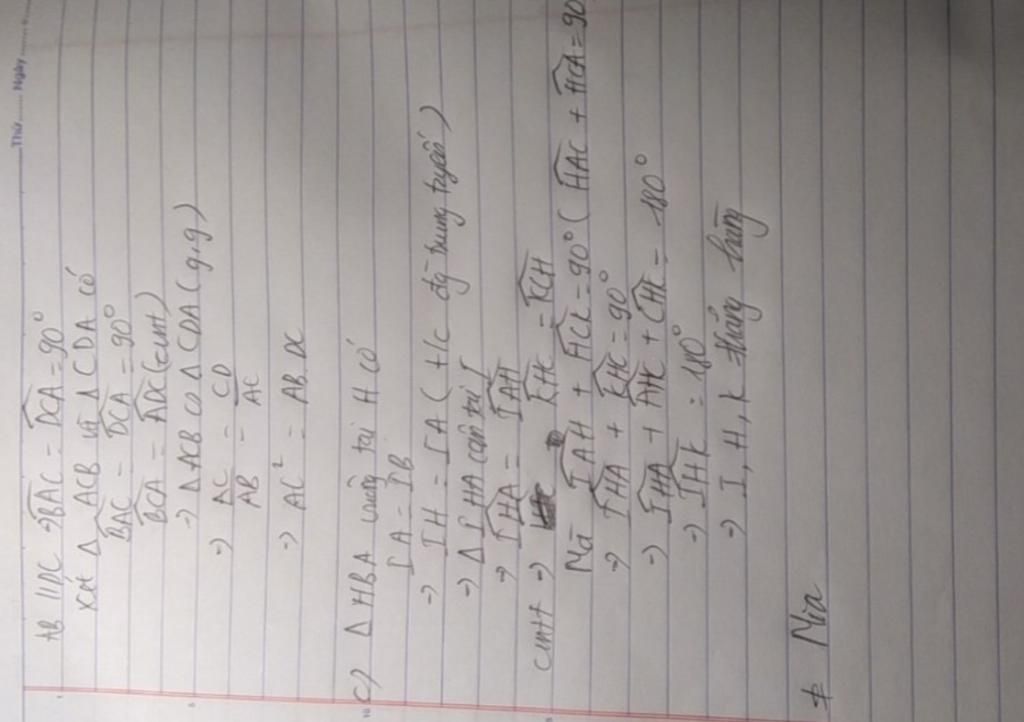 Thứ ........ Ngày ........
AB // DC ⇒ BAC = DCA = 90°
Xét Δ ACB và Δ CDA có
BAC = DCA = 90°
BCA = ADC (cmt)
⇒ Δ ACB ∽ Δ CDA (g.g)
⇒ AC/AB = CD/AC
⇒ AC² = AB.DC
c) Δ HBA vuông tại H có
IA = IB
⇒ IH = IA (t/c đg trung tuyến)
⇒ Δ IHA cân tại I
⇒ IHA = IAH
cmtt ⇒ KHC = KCH
Mà IAH + HCK = 90° (HAC + HCA = 90
⇒ IHA + KHC = 90°
⇒ IHA + AHC + CHK = 180°
⇒ IHK = 180°
⇒ I, H, K thẳng hàng
* Mia